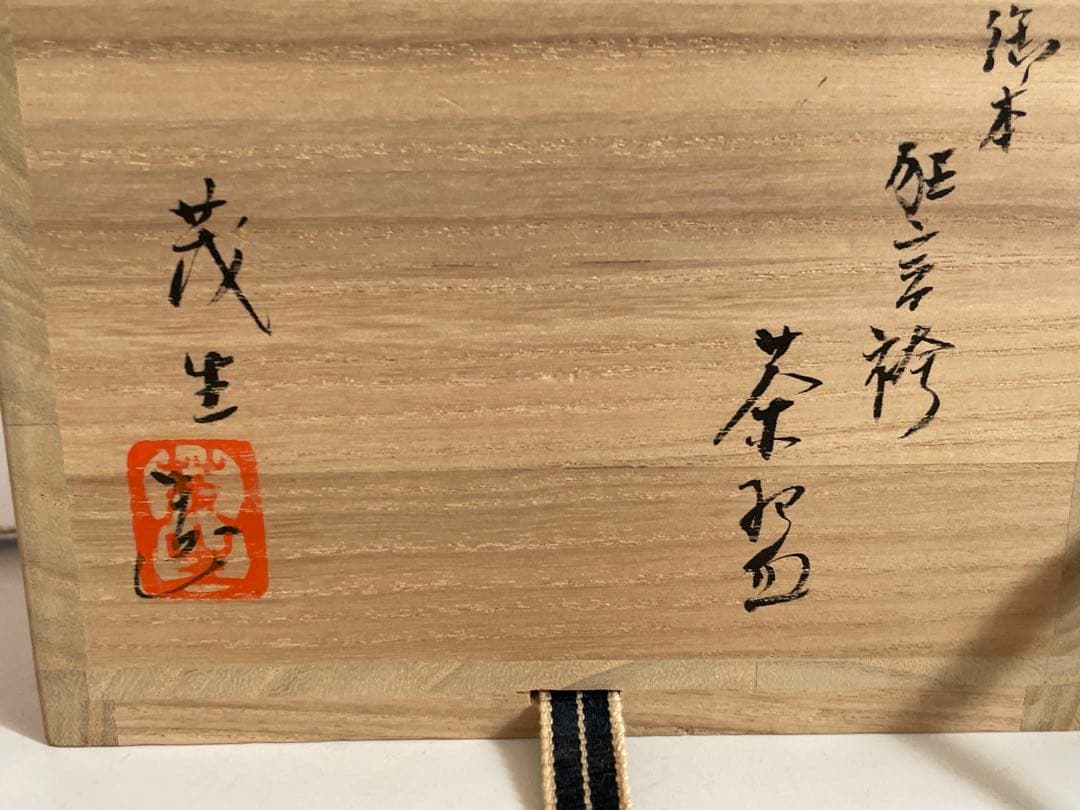 御本
狂言袴
茶盌
茂生
造